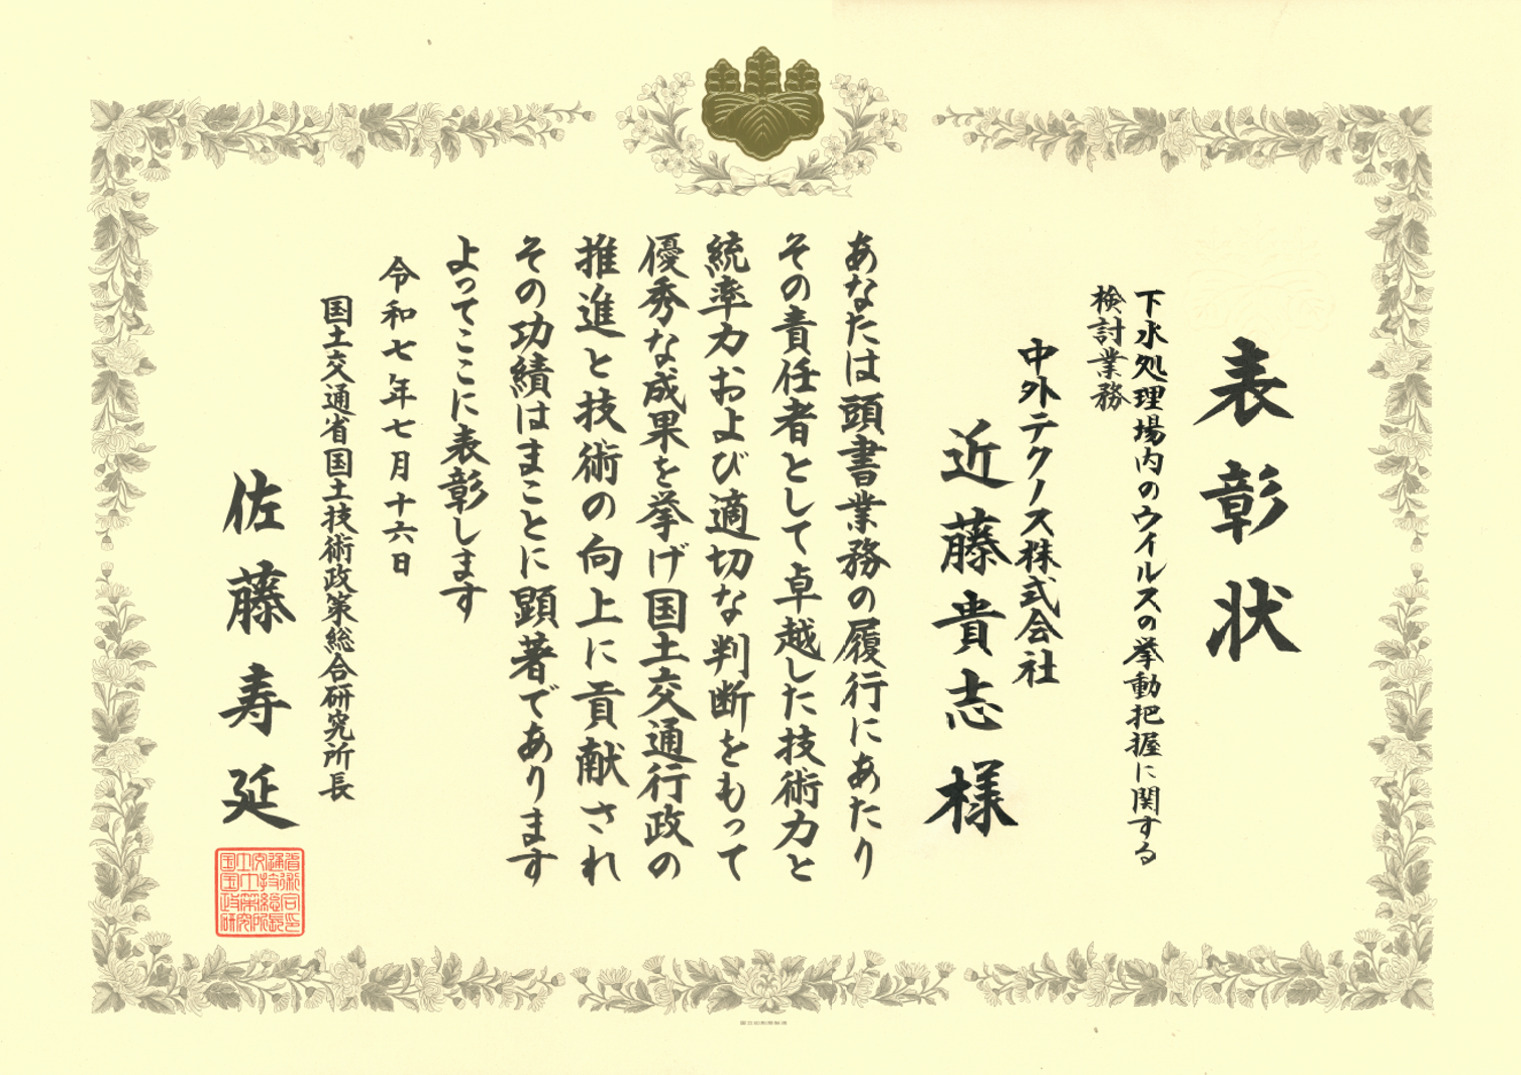 表彰状
下水処理場内のウイルスの挙動把握に関する
検討業務
中外テクノス株式会社
近藤貴志様
あなたは頭書業務の履行にあたり
その責任者として卓越した技術力と
統率力および適切な判断をもって
優秀な成果を挙げ国土交通行政の
推進と技術の向上に貢献され
その功績はまことに顕著であります
よってここに表彰します
令和七年七月十六日
国土交通省国土技術政策総合研究所長
佐藤寿延